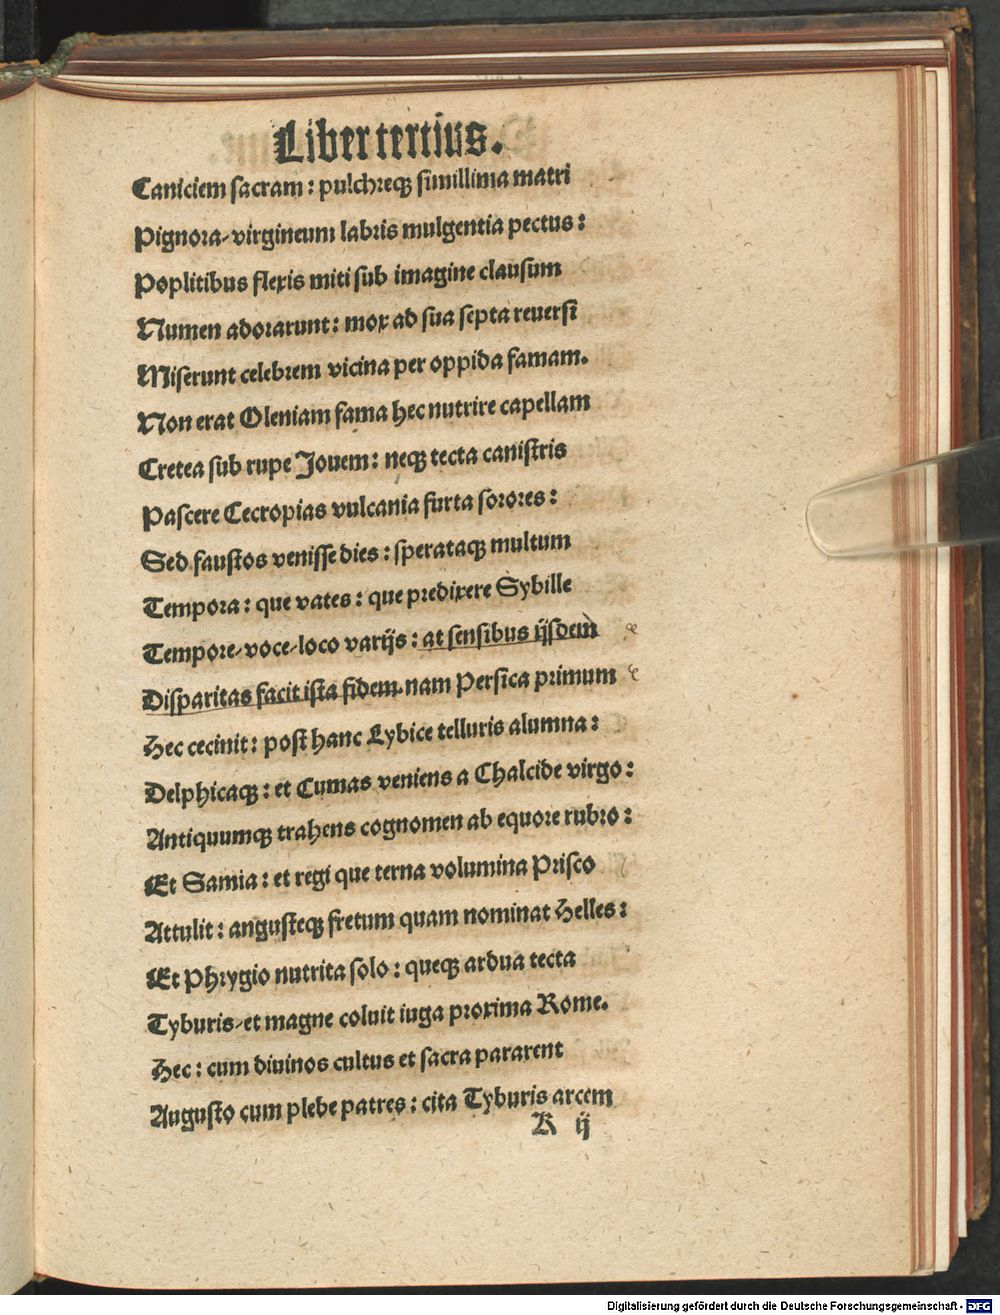 Liber tertius.
Caniciem sacram: pulchreqꝫ simillima matri
Pignora/virgineum labris mulgentia pectus:
Poplitibus flexis miti sub imagine clausum
Numen adorarunt: mox ad sua septa reuersi
Miserunt celebrem vicina per oppida famam.
Non erat Oleniam fama hec nutrire capellam
Cretea sub rupe Jouem: neqꝫ tecta canistris
Pascere Cecropias vulcania furta sorores:
Sed faustos venisse dies: sperataqꝫ multum
Tempora: que vates: que predixere Sybille
Tempore/voce/loco varijs: at sensibus ijsdem
Disparitas facit ista fidem. nam Persica primum
Hec cecinit: post hanc Lybice telluris alumna:
Delphicaqꝫ: et Cumas veniens a Chalcide virgo:
Antiquumqꝫ trahens cognomen ab equore rubro:
Et Samia: et regi que terna volumina Prisco
Attulit: angusteqꝫ fretum quam nominat Helles:
Et Phrygio nutrita solo: queqꝫ ardua tecta
Tyburis/et magne coluit iuga proxima Rome.
Hec: cum diuinos cultus et sacra pararent
Augusto cum plebe patres: cita Tyburis arcem
K ij
Digitalisierung gefördert durch die Deutsche Forschungsgemeinschaft - DFG